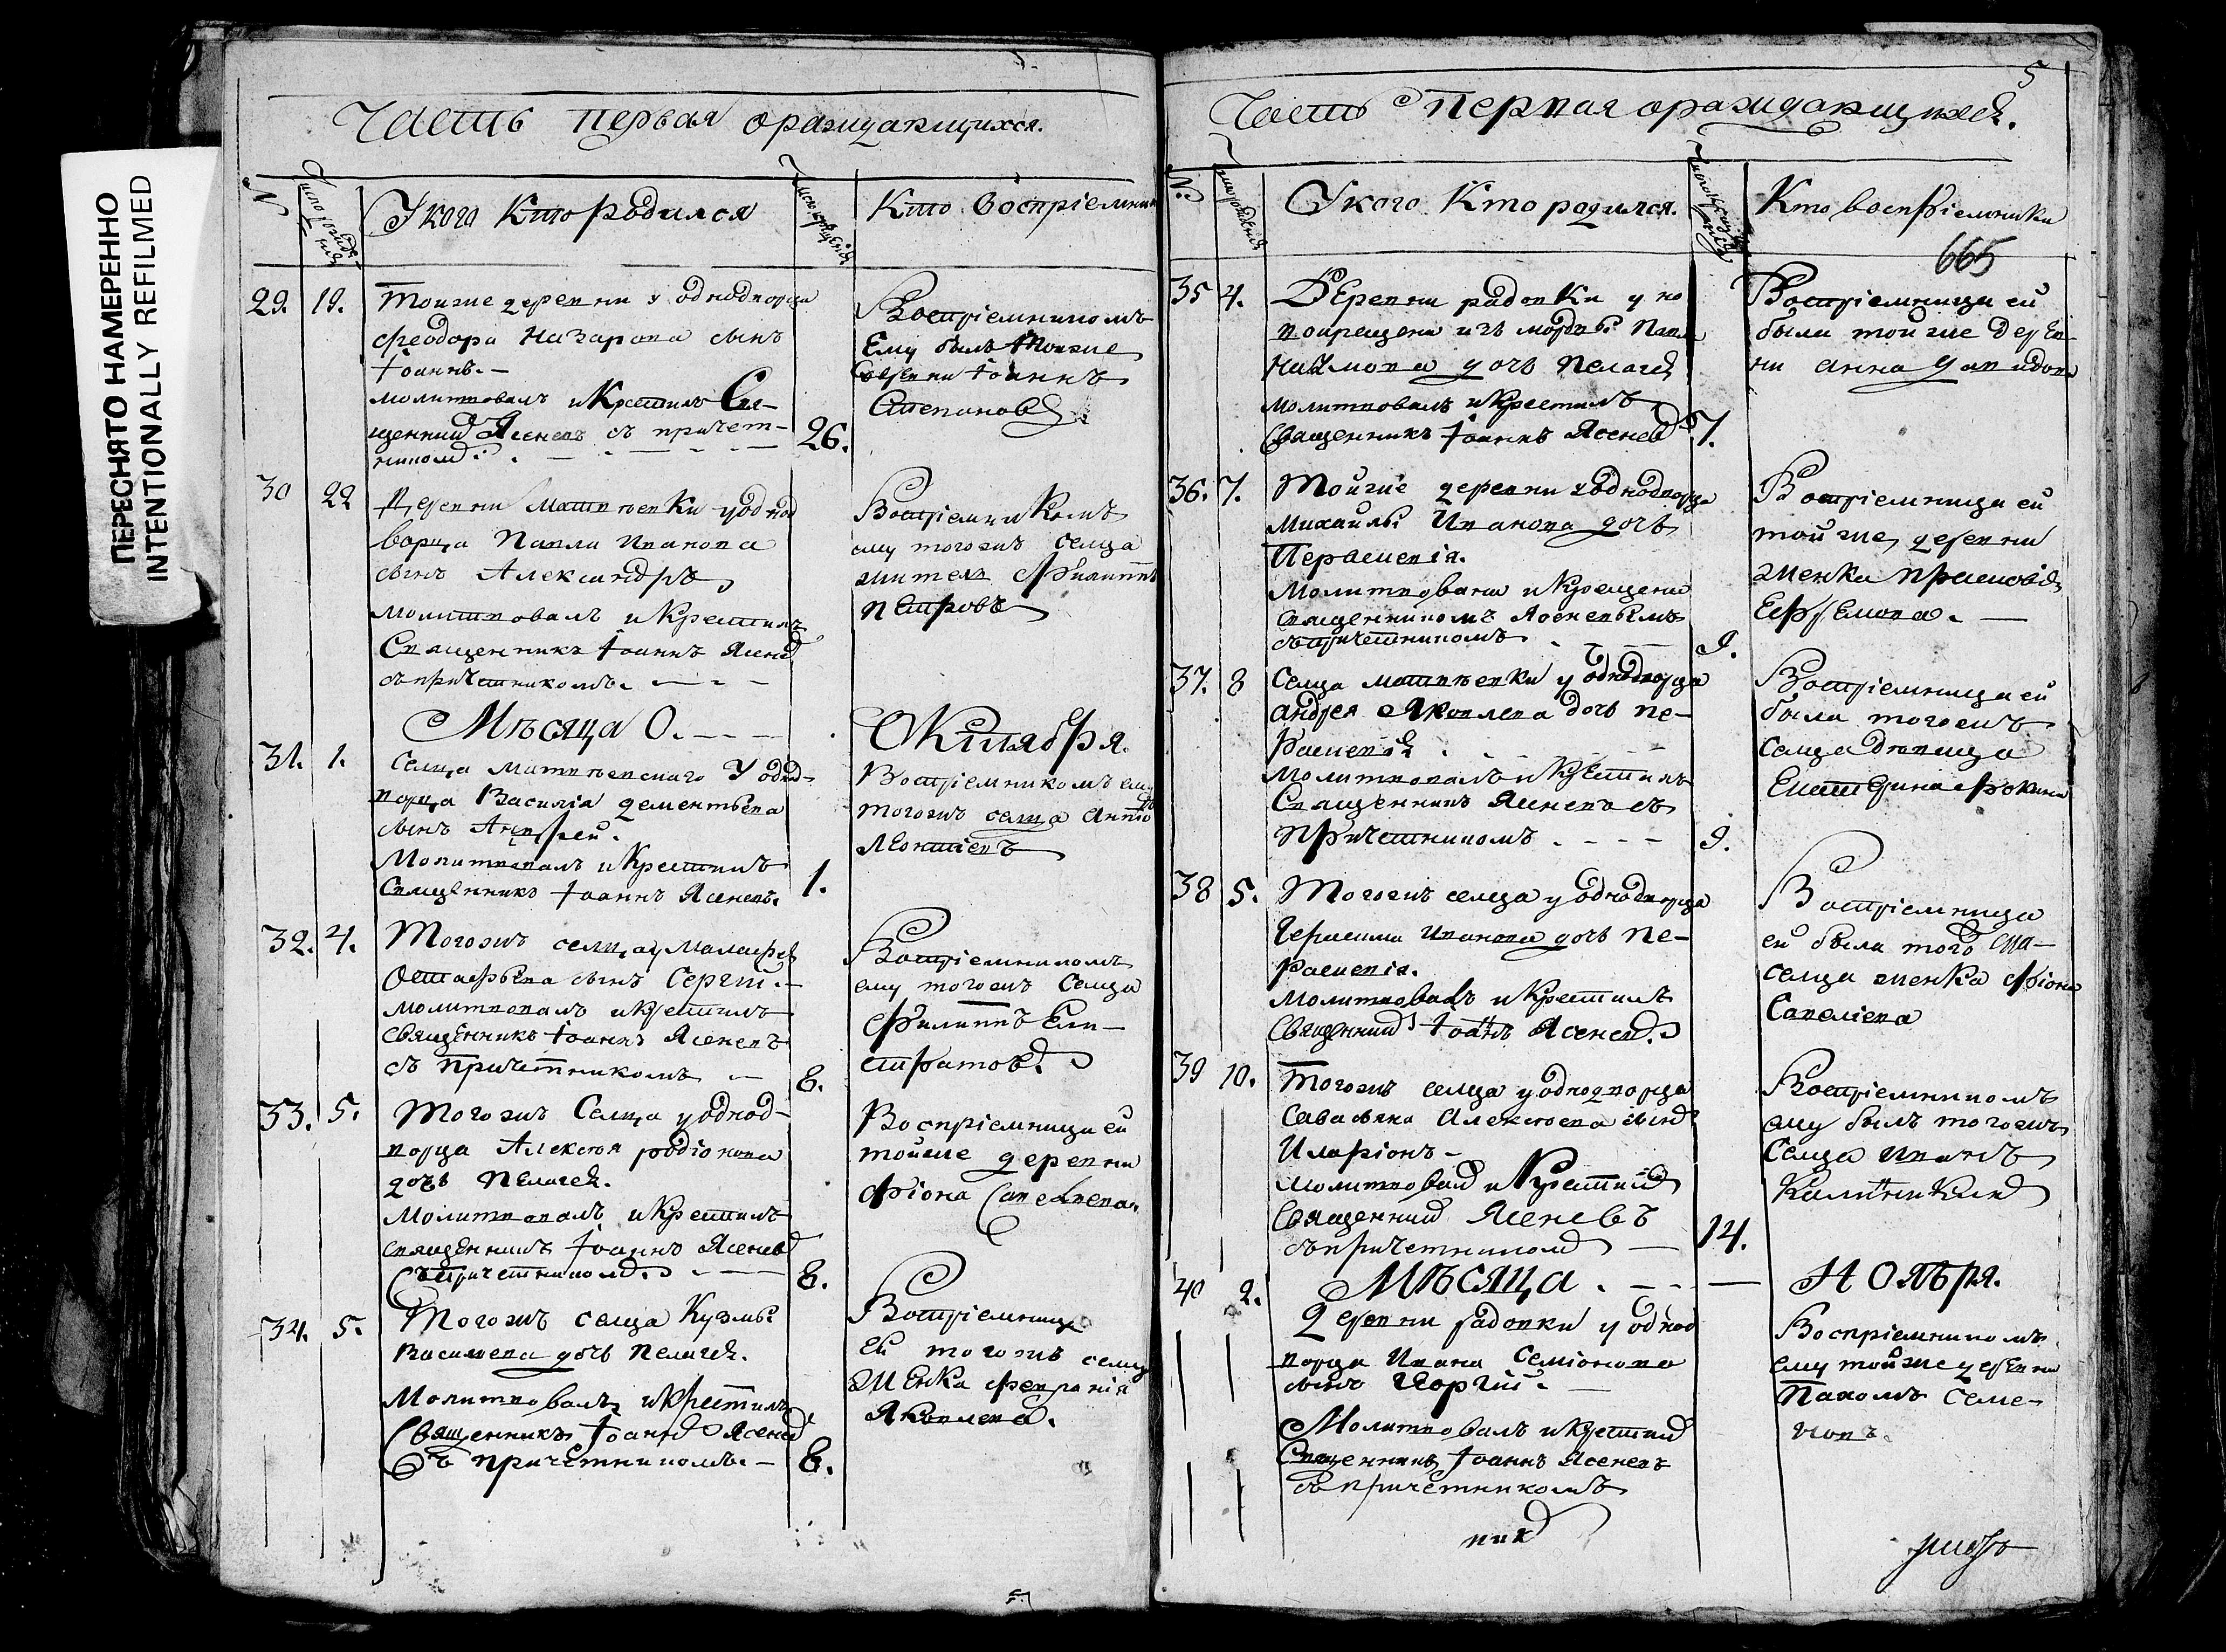 ПЕРЕСНЯТО НАМЕРЕННО
INTENTIONALLY REFILMED
Часть первая ораждающихся.
№
Число рожде-
нія
У кого кто родился
Число крещенія
Кто воспріемники
29. 19.
Тойже деревни у однодворца
Феодора Назарова сынъ
Іоаннъ.-
молитвовалъ и крестилъ Свя-
щенникъ Ясеневъ съ причет-
никомъ.
26.
Воспріемникомъ
ему былъ тойже
деревни Іоаннъ
Степановъ.
30 22
Деревни Матвѣевки у однод
ворца Павла Иванова
сынъ Александръ
молитвовалъ и крестилъ
Священникъ Іоаннъ Ясенев
съ причетникомъ.
Воспріемникомъ
ему тогожъ селца
житель Филиппъ
Петровъ
Мѣсяца О.
Октября.
31. 1.
Селца Матвѣевскаго У однод-
ворца Василія Дементьева
сынъ Андрей.
Молитвовалъ и крестилъ
Священникъ Іоаннъ Ясеневъ.
1.
Воспріемникомъ ему
тогожъ селца
Леонтіевъ
32. 4.
Тогожъ селца у Малафея
Остафьева сынъ Сергій.-
молитвовалъ и крестилъ
священникъ Іоаннъ Ясеневъ
съ причетникомъ
6.
Воспріемникомъ
ему тогожъ Селца
Филиппъ Ели-
стратовъ.
33. 5.
Тогожъ Селца у однод-
ворца Алексѣя родіонова
дочь Пелагея.
Молитвовалъ и крестилъ
священникъ Іоаннъ Ясеневъ
съ причетникомъ.
6.
Воспріемница ей
тойже деревни
Фіона Савельева.
34. 5.
Тогожъ селца Кузмы
Василева дочь Пелагея.
Молитвовалъ и крестилъ
Священникъ Іоаннъ Ясеневъ
Съ причетникомъ.-
6.
Воспріемница
ей тогожъ селца
женка Февронія
Яковлева.
5
Часть первая ораждающихся.
665
№.
Число рожденія
У кого Кто родился.
Число крещенія
Кто воспріемники
35 4.
Деревни радовки у но
вокрещена изъ мордвы Павла
Наумова дочь Пелагея
молитвовалъ и крестилъ
Священникъ Іоаннъ Ясеневъ
7.
Воспріемница ей
была тойже дерев-
ни Анна Давидова
36. 7.
Тойже деревни у однодворца
Михайлы Иванова дочь
Параскевія.
Молитвована и крещена
священникомъ Ясеневымъ
съ причетникомъ
9.
Воспріемница ей
тойже деревни
женка Прасковія
Ефремова.
37. 8
Селца матвѣевки у однодворца
Андрея Яковлева дочь Пе-
раскевія
Молитвовалъ и крестилъ
Священникъ Ясеневъ съ
причетникомъ
9.
Воспріемница ей
была тогожъ
селца вдовица
Екатерина Фокина
38 5.
Тогожъ селца у однодворца
Герасима Иванова дочь Пе-
раскевія.
Молитвовалъ и крестилъ
Священникъ Іоаннъ Ясеневъ.
Воспріемница
ей была того
селца женка Фіона
Савеліева
39 10.
Тогожъ селца у однодворца
Савастьяна Алексѣева сынъ
Иларіонъ-
молитвовалъ и крестилъ
Священникъ Ясеневъ
съ причетникомъ
14.
Воспріемникомъ
ему былъ тогожъ
Селца Иванъ
Калининкинъ
Мѣсяца.
Ноября.
40 2.
Деревни радовки у однод
ворца Ивана Семіонова
сынъ Георгій.
Молитвовалъ и крестилъ
Священникъ Іоаннъ Ясеневъ
съ причетникомъ
Воспріемникомъ
ему тойже деревни
Пахомъ Семе-
новъ.